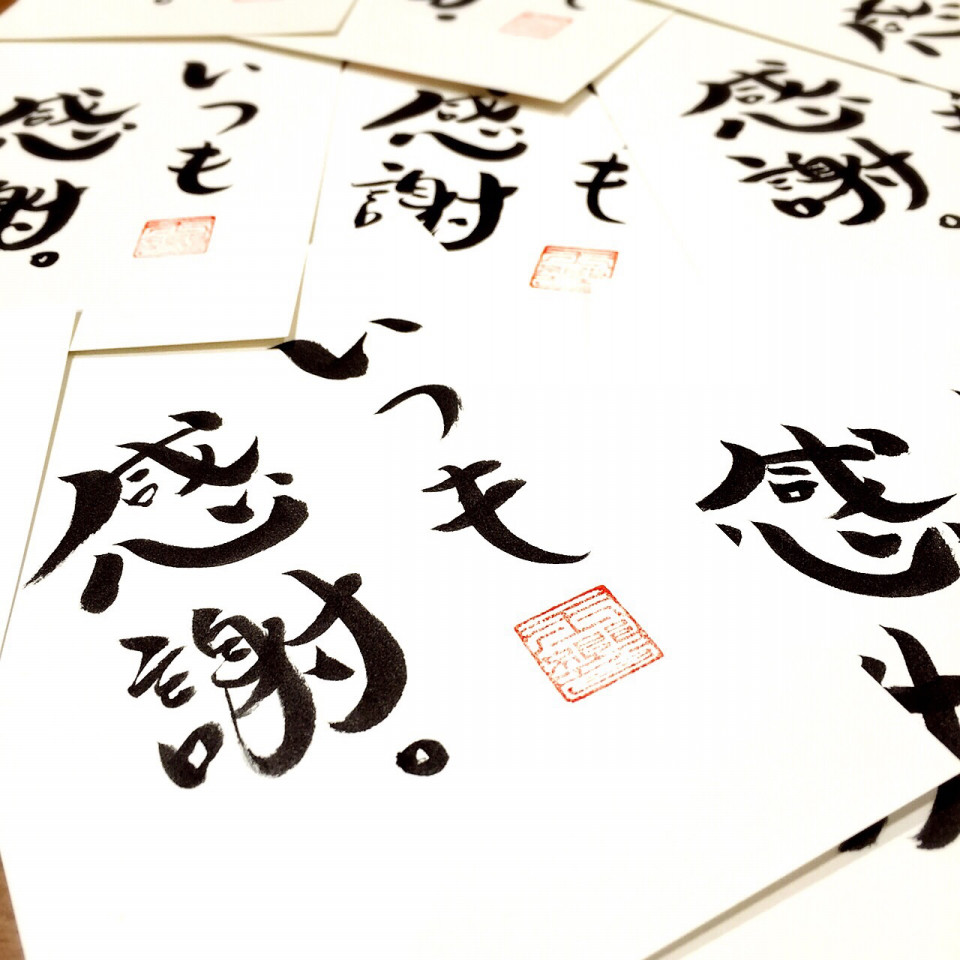 いつも
感謝。
いつも
感謝
いつも
感謝。
感謝。
感